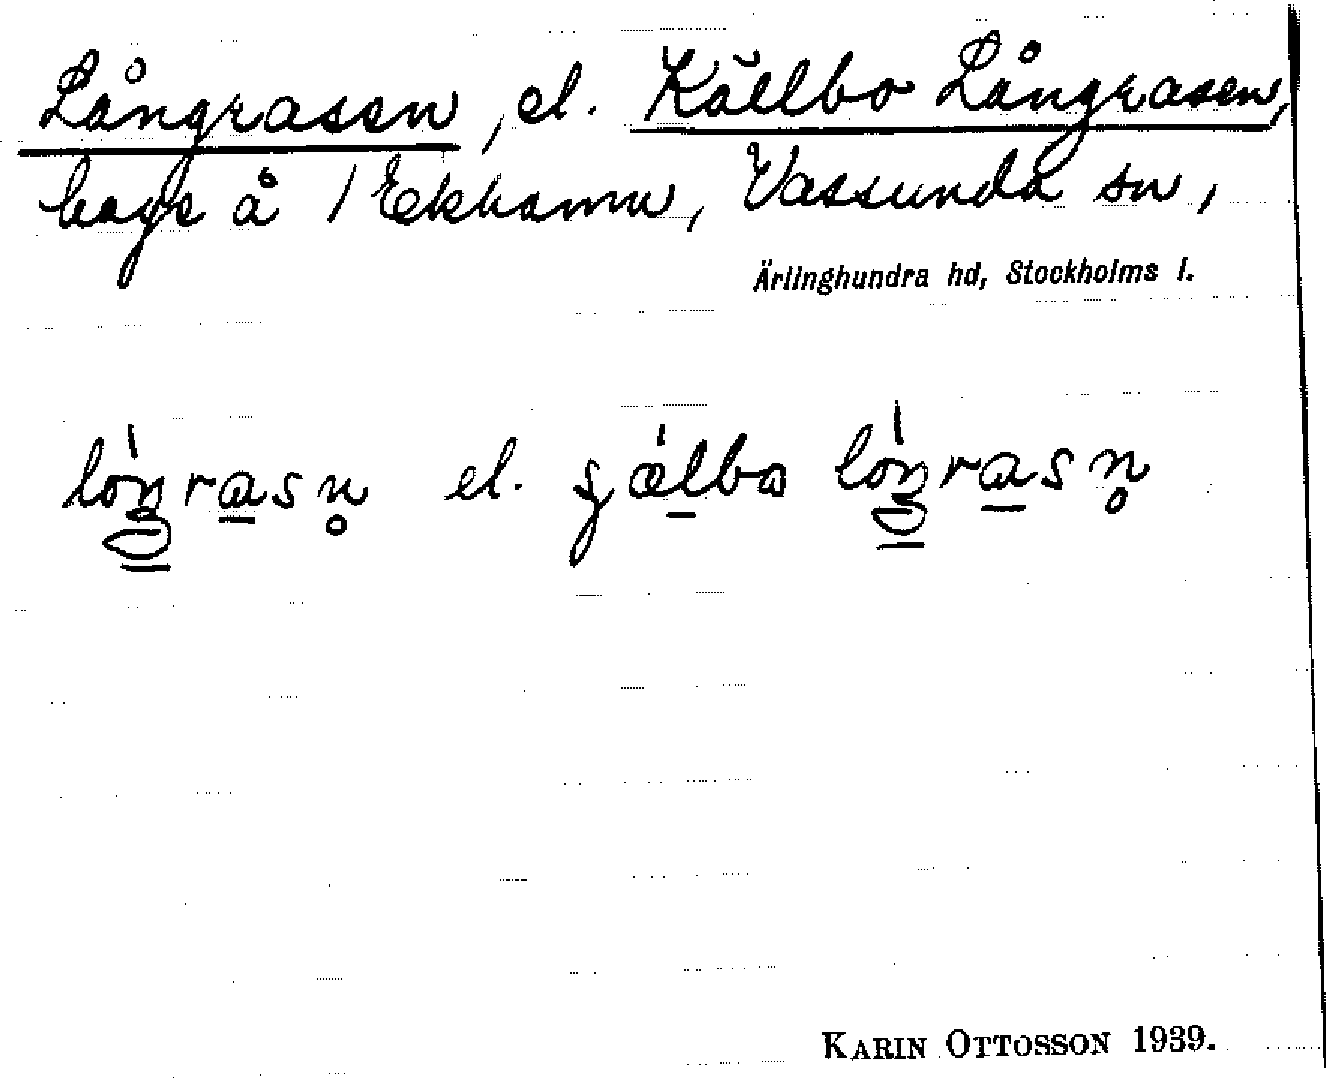 Långrasen, el. Källbo Långrasen,
hage å 1 Ekhamn, Vassunda sn,
Ärlinghundra hd, Stockholms l.
el.
KARIN OTTOSSON 1939.